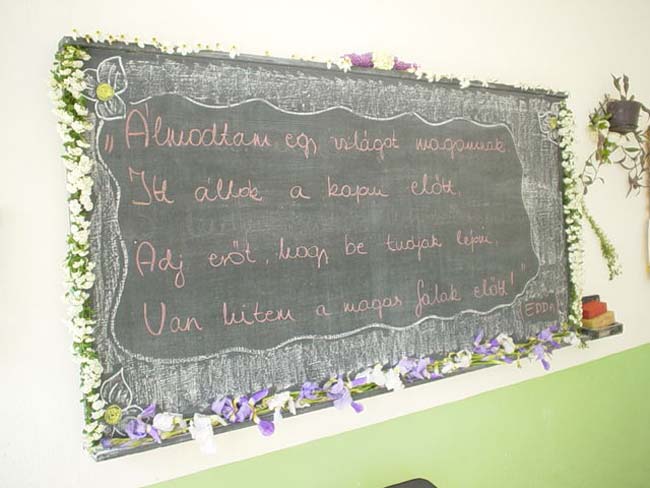 „Álmodtam egy világot magamnak
Itt állok a kapui előtt.
Adj erőt, hogy be tudjak lépni,
Van hitem a magas falak előtt!"
EDDA